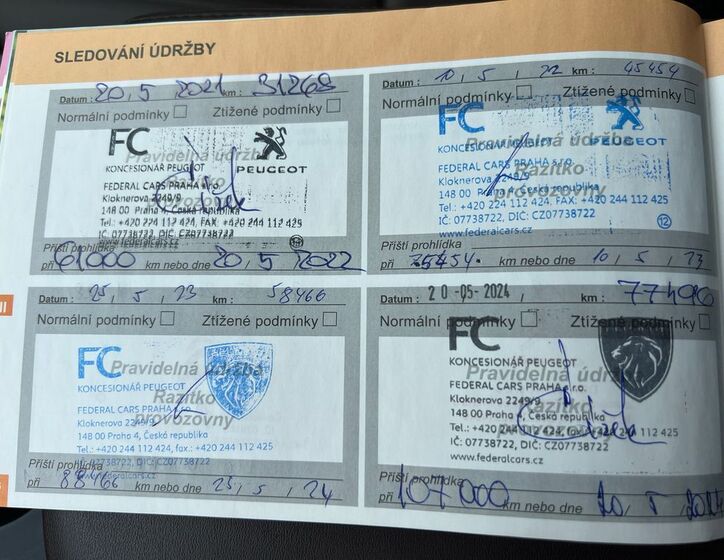 SLEDOVÁNÍ ÚDRŽBY
Datum : 20, 5 2021 km : 31268
Normální podmínky Ztížené podmínky
FC
PEUGEOT
Pravidelná údržba
KONCESIONÁŘ PEUGEOT
Razítko
provozovny
FEDERAL CARS PRAHA s.r.o.
Kloknerova 2249/9
148 00 Praha 4, Česká republika
Tel.: +420 224 112 424, FAX: +420 244 112 425
IČ: 07738722, DIČ: CZ07738722
www.federalcars.cz
Příští prohlídka
při 61000 km nebo dne 20, 5 2022
Datum : 10, 5, 22 km : 45454
Normální podmínky Ztížené podmínky
FC
PEUGEOT
Pravidelná údržba
KONCESIONÁŘ PEUGEOT
Razítko
provozovny
FEDERAL CARS PRAHA s.r.o.
Kloknerova 2249/9
148 00 Praha 4, Česká republika
Tel.: +420 224 112 424, FAX: +420 244 112 425
IČ: 07738722, DIČ: CZ07738722
www.federalcars.cz
12
Příští prohlídka
při 75454. km nebo dne 10, 5, 23
Datum : 25, 5, 23 km : 58466
Normální podmínky Ztížené podmínky
FC
Pravidelná údržba
KONCESIONÁŘ PEUGEOT
Razítko
provozovny
FEDERAL CARS PRAHA s.r.o.
Kloknerova 2249/9
148 00 Praha 4, Česká republika
Tel.: +420 244 112 424, fax.: +420 244 112 425
IČ: 07738722, DIČ: CZ07738722
www.federalcars.cz
Příští prohlídka
při 88466 km nebo dne 25, 5, 24
Datum : 20 -05- 2024 km : 77496
Normální podmínky Ztížené podmínky
FC
KONCESIONÁŘ PEUGEOT
Pravidelná údržba
Razítko
provozovny
FEDERAL CARS PRAHA s.r.o.
Kloknerova 2249/9
148 00 Praha 4, Česká republika
Tel.: +420 244 112 424, fax.: +420 244 112 425
IČ: 07738722, DIČ: CZ07738722
www.federalcars.cz
Příští prohlídka
při 107000 km nebo dne 20. 5.